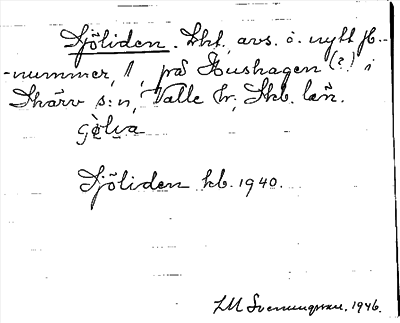 Sjöliden. Lht, avs. o. nytt jb.-
-nummer, 1, på Hushagen (?) i
Skärv s:n, Valle hr, Skb. län.
Sjöliden kb. 1940.
LM Svenungsson. 1946.